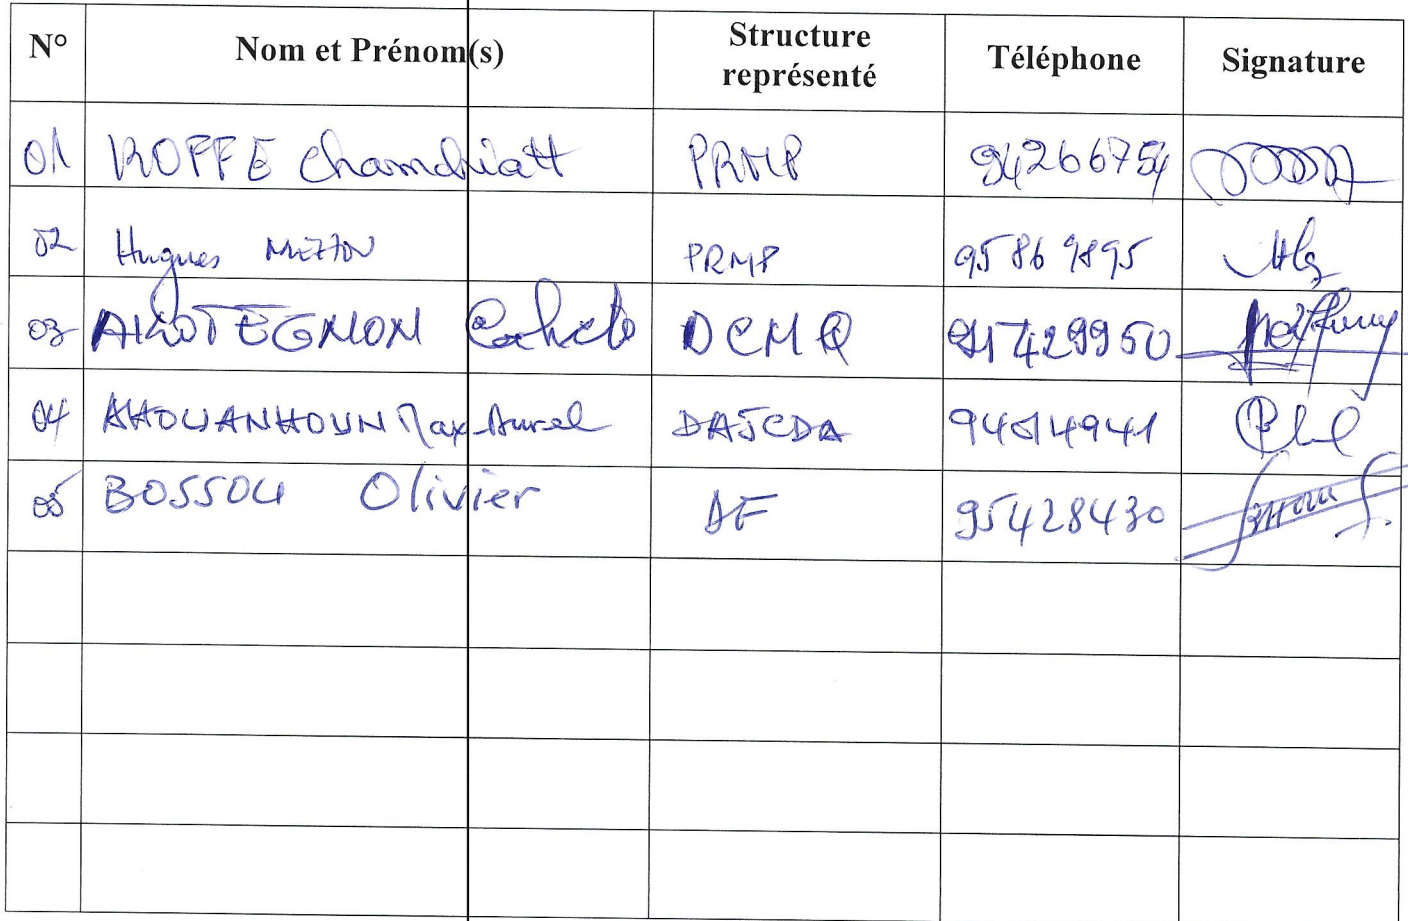 N° Nom et Prénom(s) Structure représenté Téléphone Signature
01 KOFFE Chamdiatt PRMP 94266754
02 Hugues PRMP 95869895
03 DCMQ 91429950
04 AHOUANHOUN Max-Aurel DAJCDA 94614941
05 BOSSOU Olivier AF 95428430